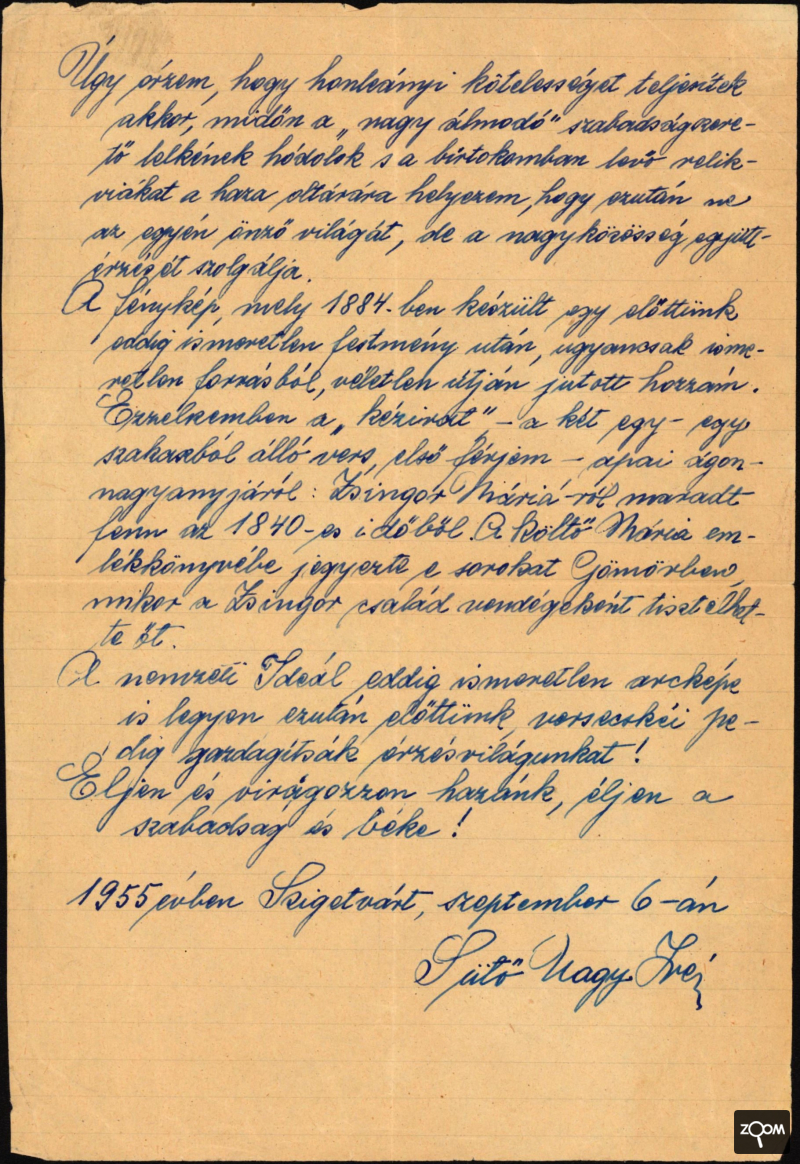 Úgy érzem, hogy honleányi kötelességet teljesítek
akkor, midőn a „nagy álmodó” szabadságszere-
tő lelkének hódolok s a birtokomban levő relik-
viákat a haza oltárára helyezem, hogy ezután ne
az egyén önző világát, de a nagyközösség együtt-
érzését szolgálja.
A fénykép, mely 1884-ben készült egy előttünk
eddig ismeretlen festmény után, ugyancsak isme-
retlen forrásból, véletlen útján jutott hozzám.
Ezzelszemben a „kézirat” – a két egy-egy
szakaszból álló vers, első férjem – apai ágon –
nagyanyjáról: Zsingor Máriá-ról maradt
fenn az 1840-es időből. A költő Mária em-
lékkönyvébe jegyezte e sorokat Gömörben,
mikor a Zsingor család vendégeként tisztelhet-
te őt.
A nemzeti Ideál eddig ismeretlen arcképe
is legyen ezután előttünk, versecskéi pe-
dig gazdagítsák érzésvilágunkat!
Éljen és virágozzon hazánk, éljen a
szabadság és béke!
1955 évben Szigetvárt, szeptember 6-án
Sütő Nagy
ZOOM